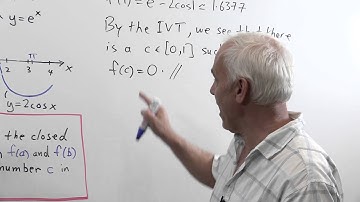 y = eˣ
π
2 3 4 x
y=2cosx
the closed
f(a) and f(b)
number c in
f(1) = e - 2cos1 = 1.6377
By the IVT, we see that there
is a c ∈ [0,1]
f(c) = 0. //